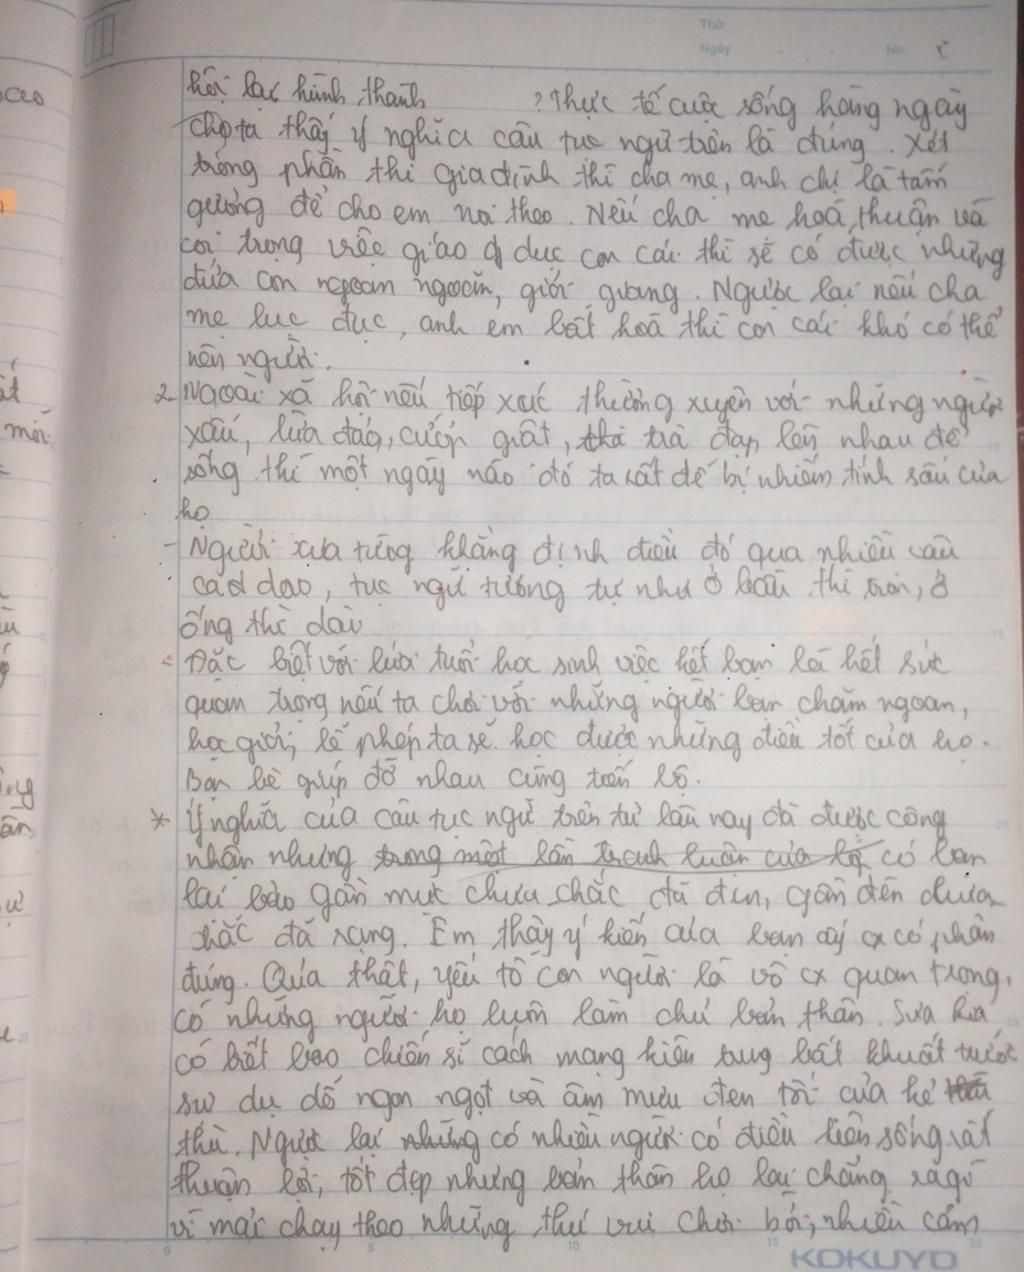 Thứ
Ngày No.
hội lại hình thành ? Thực tế cuộc sống hàng ngày
cho ta thấy ý nghĩa câu tục ngữ trên là đúng. Xét
trong phần thi gia đình thì cha mẹ, anh chị là tấm
gương để cho em noi theo. Nếu cha mẹ hoà thuận và
coi trọng việc giáo dục con cái thì sẽ có được những
đứa con ngoan ngoãn, giỏi giang. Ngược lại nếu cha
mẹ lục đục, anh em bất hoà thì con cái khó có thể
nên người.
2. Ngoài xã hội nếu tiếp xúc thường xuyên với những người
xấu, lừa đảo, cướp giật, trà đạp lên nhau để
sống thì một ngày nào đó ta rất dễ bị nhiễm tính sấu của
họ
- Người xưa từng khẳng định điều đó qua nhiều câu
cao dao, tục ngữ tương tự như ở bầu thì tròn, ở
ống thì dài
- Đặc biệt với lứa tuổi học sinh việc kết bạn là hết sức
quan trọng nếu ta chơi với những người bạn chăm ngoan,
học giỏi, lễ phép ta sẽ học được những điều tốt của họ.
Bạn bè giúp đỡ nhau cùng tiến bộ.
* Ý nghĩa của câu tục ngữ trên từ lâu nay đã được công
nhận nhưng có bạn
lại bảo gần mực chưa chắc đã đen, gần đèn chưa
chắc đã rạng. Em thấy ý kiến của bạn ấy cx có phần
đúng. Quả thật, yếu tố con người là vô cx quan trọng,
có những người họ luôn làm chủ bản thân. Sưa kia
có biết bao chiến sĩ cách mạng kiên trung bất khuất trước
sự dụ dỗ ngon ngọt và âm mưu đen tối của kẻ
thù. Ngược lại những có nhiều người có điều kiện sống rất
thuận lợi, tốt đẹp nhưng bản thân họ lại chẳng ra gì
vì mải chạy theo những thú vui chơi bời, nhiều cám
KOKUYO